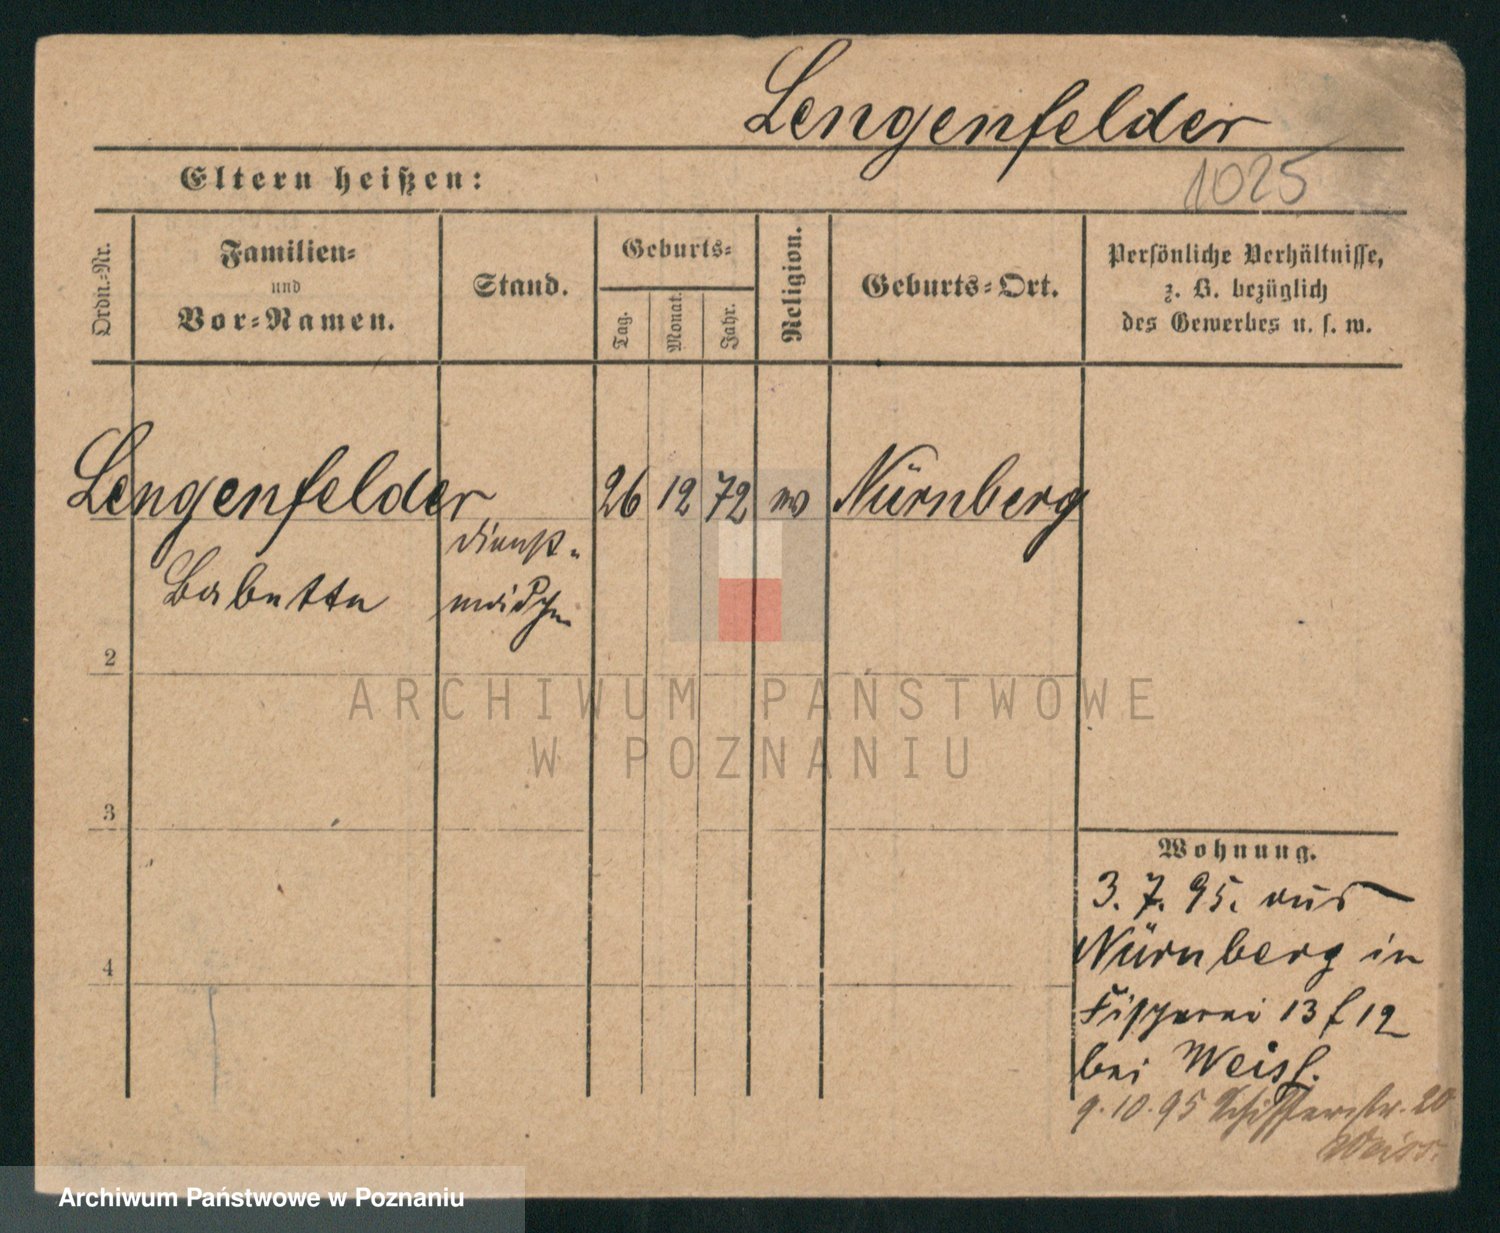 Lengenfelder
Eltern heißen:
1025
Ordn.-Nr.
Familien-
und
Vor-Namen.
Stand.
Geburts-
Tag.
Monat.
Jahr.
Religion.
Geburts-Ort.
Persönliche Verhältnisse,
z. B. bezüglich
des Gewerbes u. s. w.
Lengenfelder 26 12 72 Nürnberg
Babette
Dienst-
mädchen
2
3
4
ARCHIWUM PAŃSTWOWE
W POZNANIU
Wohnung.
3. 7. 95. aus
Nürnberg in
Fischerei 13 f 12
bei Weiss.
9. 10. 95 20
Weiss.
Archiwum Państwowe w Poznaniu